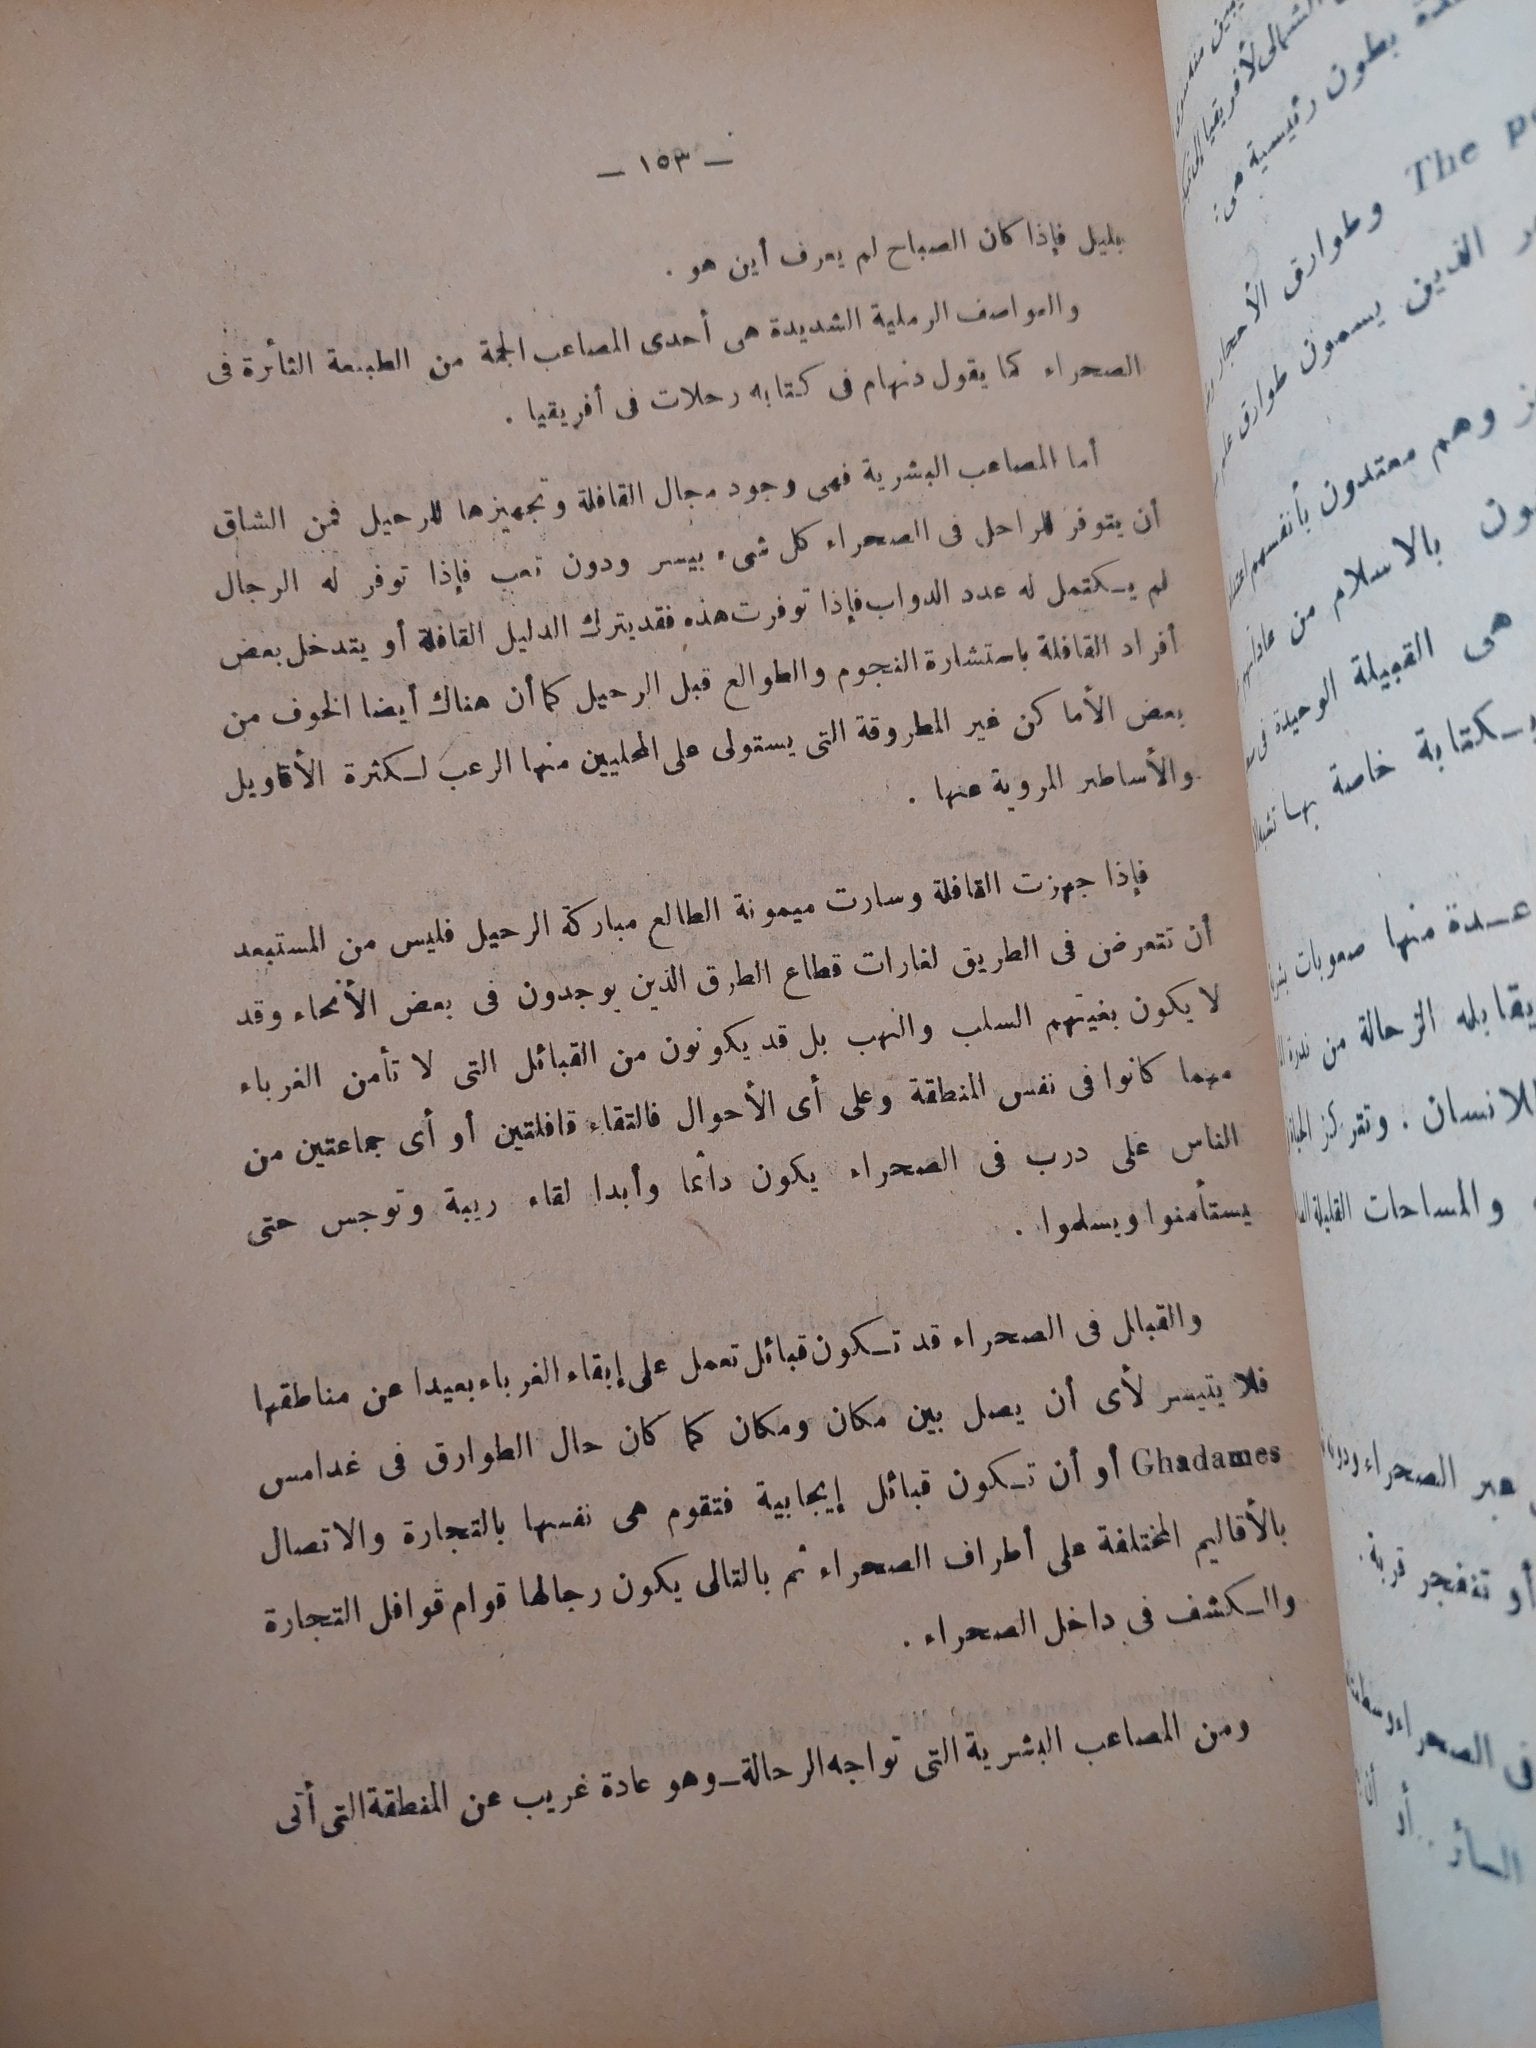 — ١٥٣ —
بليل فإذا كان الصباح لم يعرف أين هو .
والعواصف الرملية الشديدة هى أحدى المصاعب الجمة من الطبيعة الثائرة فى
الصحراء كما يقول دنهام فى كتابه رحلات فى أفريقيا .
أما المصاعب البشرية فهى وجود مجال القافلة وتجهيزها للرحيل فمن الشاق
أن يتوفر للراحل فى الصحراء كل شىء بيسر ودون تعب فإذا توفر له الرجال
لم يكتمل له عدد الدواب فإذا توفرت هذه فقد يترك الدليل القافلة أو يتدخل بعض
أفراد القافلة باستشارة النجوم والطوالع قبل الرحيل كما أن هناك أيضا الخوف من
بعض الأماكن غير المطروقة التى يستولى على المحليين منها الرعب لكثرة الأقاويل
والأساطير المروية عنها .
فإذا جهزت القافلة وسارت ميمونة الطالع مباركة الرحيل فليس من المستبعد
أن تتعرض فى الطريق لغارات قطاع الطرق الذين يوجدون فى بعض الأنحاء وقد
لا يكون بغيتهم السلب والنهب بل قد يكونون من القبائل التى لا تأمن الغرباء
مهما كانوا فى نفس المنطقة وعلى أى الأحوال فالتقاء قافلتين أو أى جماعتين من
الناس على درب فى الصحراء يكون دائما وأبدا لقاء ريبة وتوجس حتى
يستأمنوا ويسلموا .
والقبائل فى الصحراء قد تكون قبائل تعمل على إبقاء الغرباء بعيدا عن مناطقها
فلا يتيسر لأى أن يصل بين مكان ومكان كما كان حال الطوارق فى غدامس
Ghadames أو أن تكون قبائل إيجابية فتقوم هى نفسها بالتجارة والاتصال
بالأقاليم المختلفة على أطراف الصحراء ثم بالتالى يكون رجالها قوام قوافل التجارة
والكشف فى داخل الصحراء .
ومن المصاعب البشرية التى تواجه الرحالة – وهو عادة غريب عن المنطقة التى أتى
بطون رئيسية هى :
The وطوارق الأحجار
الذين يسمون طوارق
وهم معتدون بأنفسهم
بالاسلام من
هى القبيلة الوحيدة فى
بكتابة خاصة بها
عدة منها صعوبات
يقابله الرحالة من ندرة
للانسان . وتتركز
والمساحات القليلة
عبر الصحراء
أو تنفجر قربة .
فى الصحراء
أو